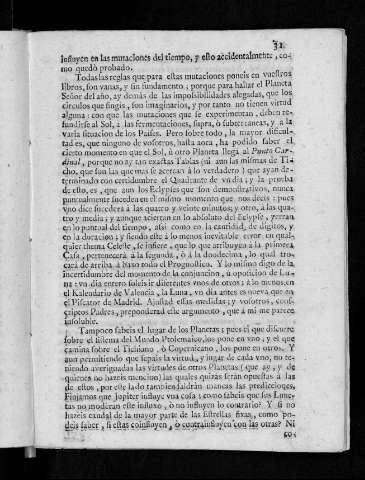 31
influyen en las mutaciones del tiempo, y esto accidentalmente, co-
mo quedò probado.
Todas las reglas que para estas mutaciones poneis en vuestros
libros, son vanas, y sin fundamento; porque para hallar el Planeta
Señor del año, ay demás de las impossibilidades alegadas, que los
circulos que fingis, son imaginarios, y por tanto no tienen virtud
alguna: con que las mutaciones que se experimentan, deben re-
fundirse al Sol, à las fermentaciones, supra, ò subterraneas, y à la
varia situacion de los Países. Pero sobre todo, la mayor dificul-
tad es, que ninguno de vosotros, hasta aora, ha podido saber el
cierto momento en que el Sol, ù otro Planeta llega al Punto Car-
dinal, porque no ay tan exactas Tablas (ni aun las mismas de Ti-
cho, que son las que mas se acercan à lo verdadero) que ayan de-
terminado con certidumbre el Quadrante de vn dia; y la prueba
de esto, es, que aun los Eclypses que son demostrativos, nunca
puntualmente suceden en el mismo momento que nos decis; pues
vno dice sucederá à las quatro y veinte minutos; y otro, à las qua-
tro y media; y aunque acierran en lo absoluto del Eclypse, yerran
en lo puntual del tiempo, assi como en la cantidad, de digitos, y
en la duracion; y siendo este à lo menos inevitable error en qual-
quier thema Celeste, se infiere, que lo que atribuyen à la primera
Casa, pertenecerá à la segunda, ò à la duodecima, lo qual tro-
cará de arriba à baxo todo el Prognostico. Y lo mismo digo de la
incertidumbre del momento de la conjuncion, ù oposicion de Lu-
na: vn dia entero soleis ir diferentes vnos de otros; à lo menos en
el Kalendario de Valencia, la Luna, vn dia antes es nueva que en
el Piscator de Madrid. Ajustad essas medidas; y vosotros, cons-
criptos Padres, preponderad este argumento, que à mi me parece
insoluble.
Tampoco sabeis el lugar de los Planetas; pues el que discurre
sobre el sistema del Mundo Ptolemaico, los pone en vno; y el que
camina sobre el Tichiano, ò Copernicano, los pone en otros. Y
aun permitiendo que sepais la virtud, y lugar de cada vno, no te-
niendo averiguadas las virtudes de otros Planetas (que ay, y de
quienes no hazeis mencion) las quales quizás serán opuestas à las
de estos, por este lado tambien saldrán mancas las predicciones.
Finjamos que Jupiter influye vna cosa: como sabeis que sus Lune-
tas no moderan este influxo, ò no influyen lo contrario? Y si no
hazeis caudal de la mayor parte de las Estrellas fixas, como po-
deis saber, si estas coinfluyen, ò contrainfluyen con las otras? Ni